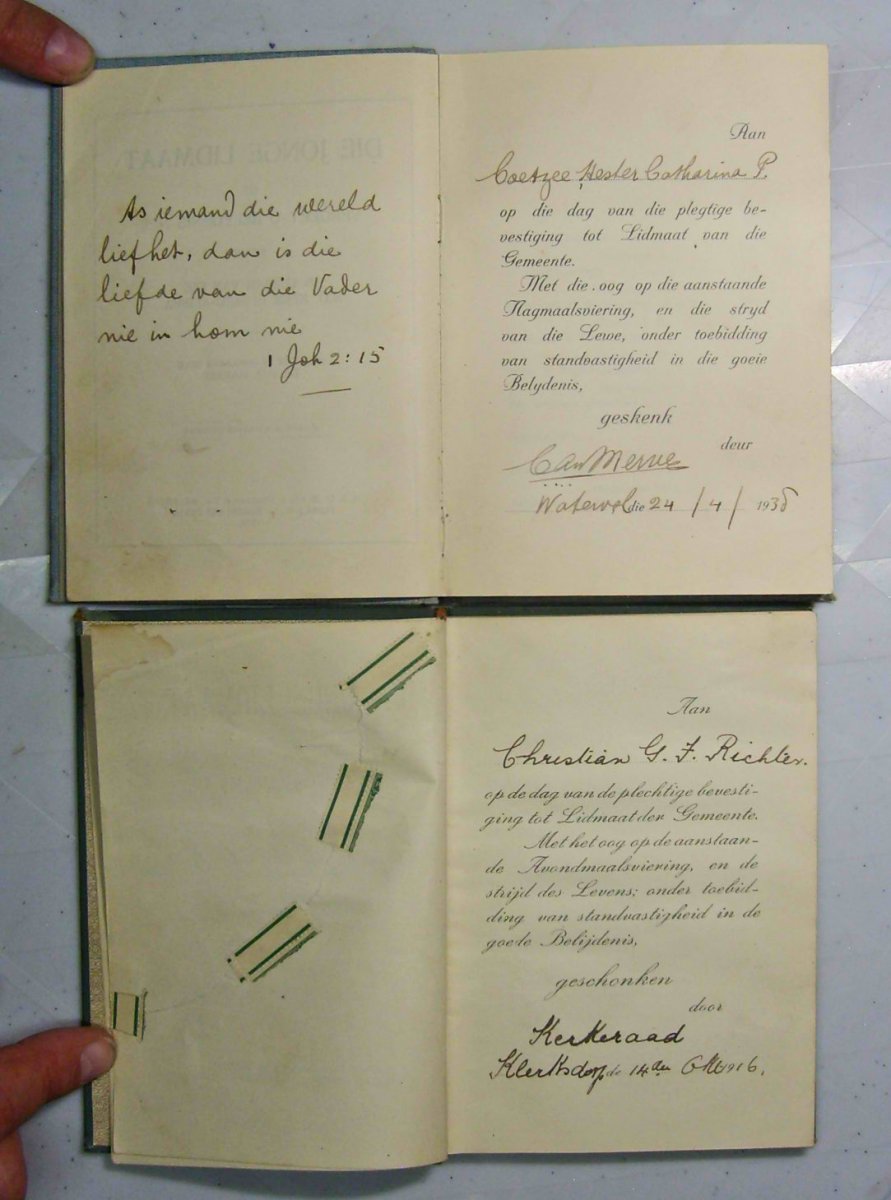 DIE JONGE LIDMAAT
As iemand die wereld
liefhet, dan is die
liefde van die Vader
nie in hom nie
1 Joh 2:15
Aan
Coetzee, Hester Catharina P.
op die dag van die plegtige be-
vestiging tot Lidmaat van die
Gemeente.
Met die oog op die aanstaande
Nagmaalsviering, en die stryd
van die Lewe, onder toebidding
van standvastigheid in die goeie
Belydenis,
geskenk
deur
Merwe
Waterval die 24/4/1938
Aan
Christian G. F. Richter.
op de dag van de plechtige bevesti-
ging tot Lidmaat der Gemeente.
Met het oog op de aanstaan-
de Avondmaalsviering, en de
strijd des Levens; onder toebid-
ding van standvastigheid in de
goede Belijdenis,
geschonken
door
Kerkeraad
Klerksdorp de 14den Okt 1916.